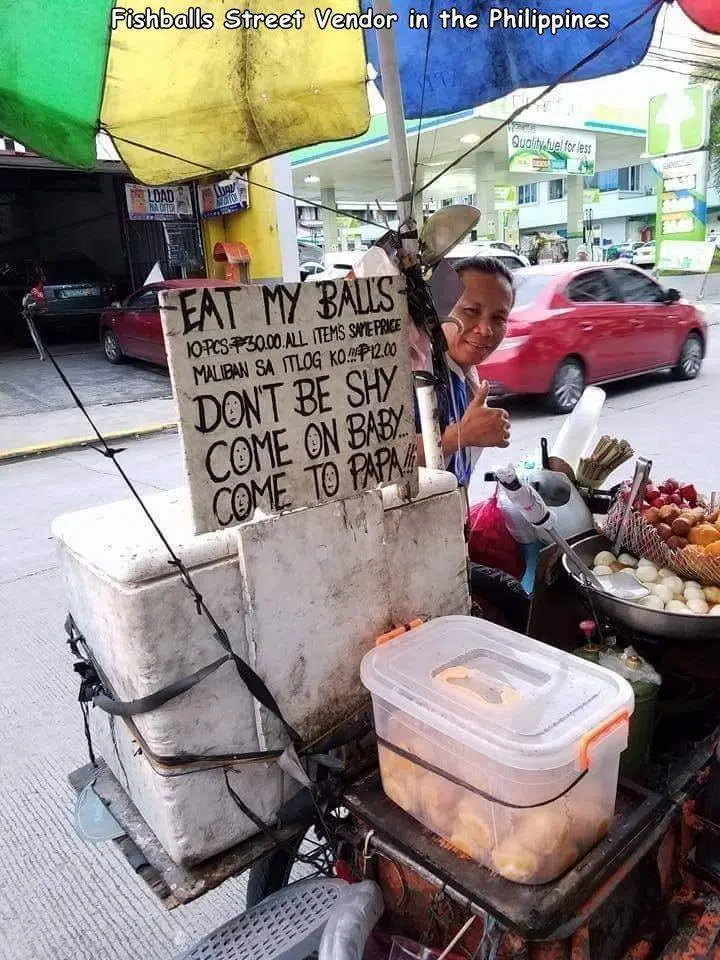 Fishballs Street Vendor in the Philippines
Quality fuel for less
LOAD
NA DITO!
EAT MY BALLS
10-PCS-₱30.00.ALL ITEMS SAME PRICE
MALIBAN SA ITLOG KO!!!₱12.00
DON'T BE SHY
COME ON BABY...
COME TO PAPA!!!